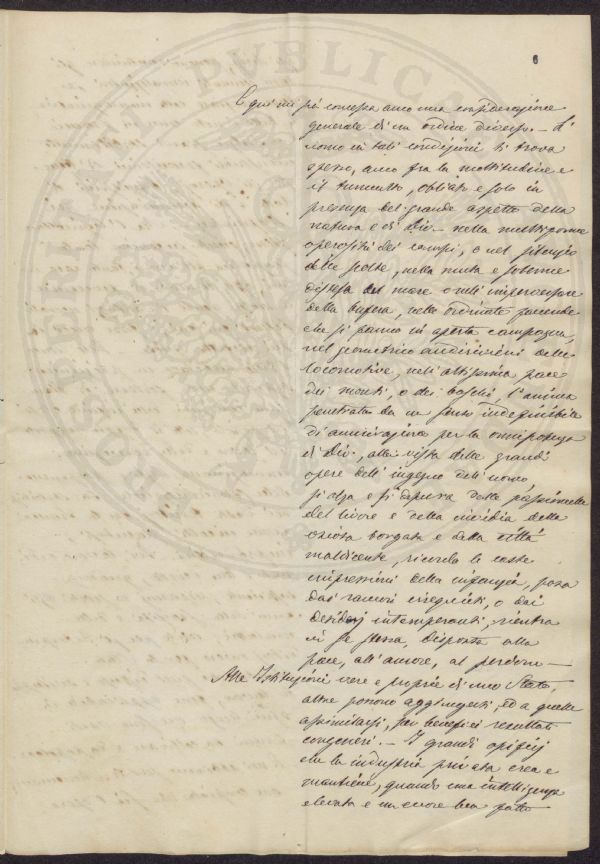 6
E qui mi sia concessa anco una considerazione
generale di un ordine diverso. – L'
uomo in tali condizioni si trova
spesso, anco fra la moltitudine e
il tumulto, obliato e solo in
presenza del grande aspetto della
natura e di Dio – nella multiforme
operosità dei campi, o nel silenzio
delle scolte, nella muta e solenne
distesa del mare o nell'imperversare
della bufera, nelle ordinate faccende
che si fanno in aperta campagna,
nel geometrico andirivieni delle
locomotive, nell'altissima pace
dei monti, o dei boschi, l'anima
penetrata da un senso indefinibile
di ammirazione per la onnipotenza
di Dio, alla vista delle grandi
opere dell'ingegno dell'uomo,
si alza e si depura dalle passioncelle
del livore e della invidia della
oziosa borgata e della città
maldicente, ricorda le caste
impressioni della infanzia, posa
dai rancori irrequieti, o dai
desiderj intemperanti, rientra
in se stessa, disposta alla
pace, all'amore, al perdono –
Alle Istituzioni vere e proprie di uno Stato,
altre possono aggiungersi, ed a quelle
assimilarsi, per benefici resultati
congeneri. – I grandi opificj
che la industria privata crea e
mantiene, quando una intelligenza
elevata e un cuore ben fatto
PUBLICA